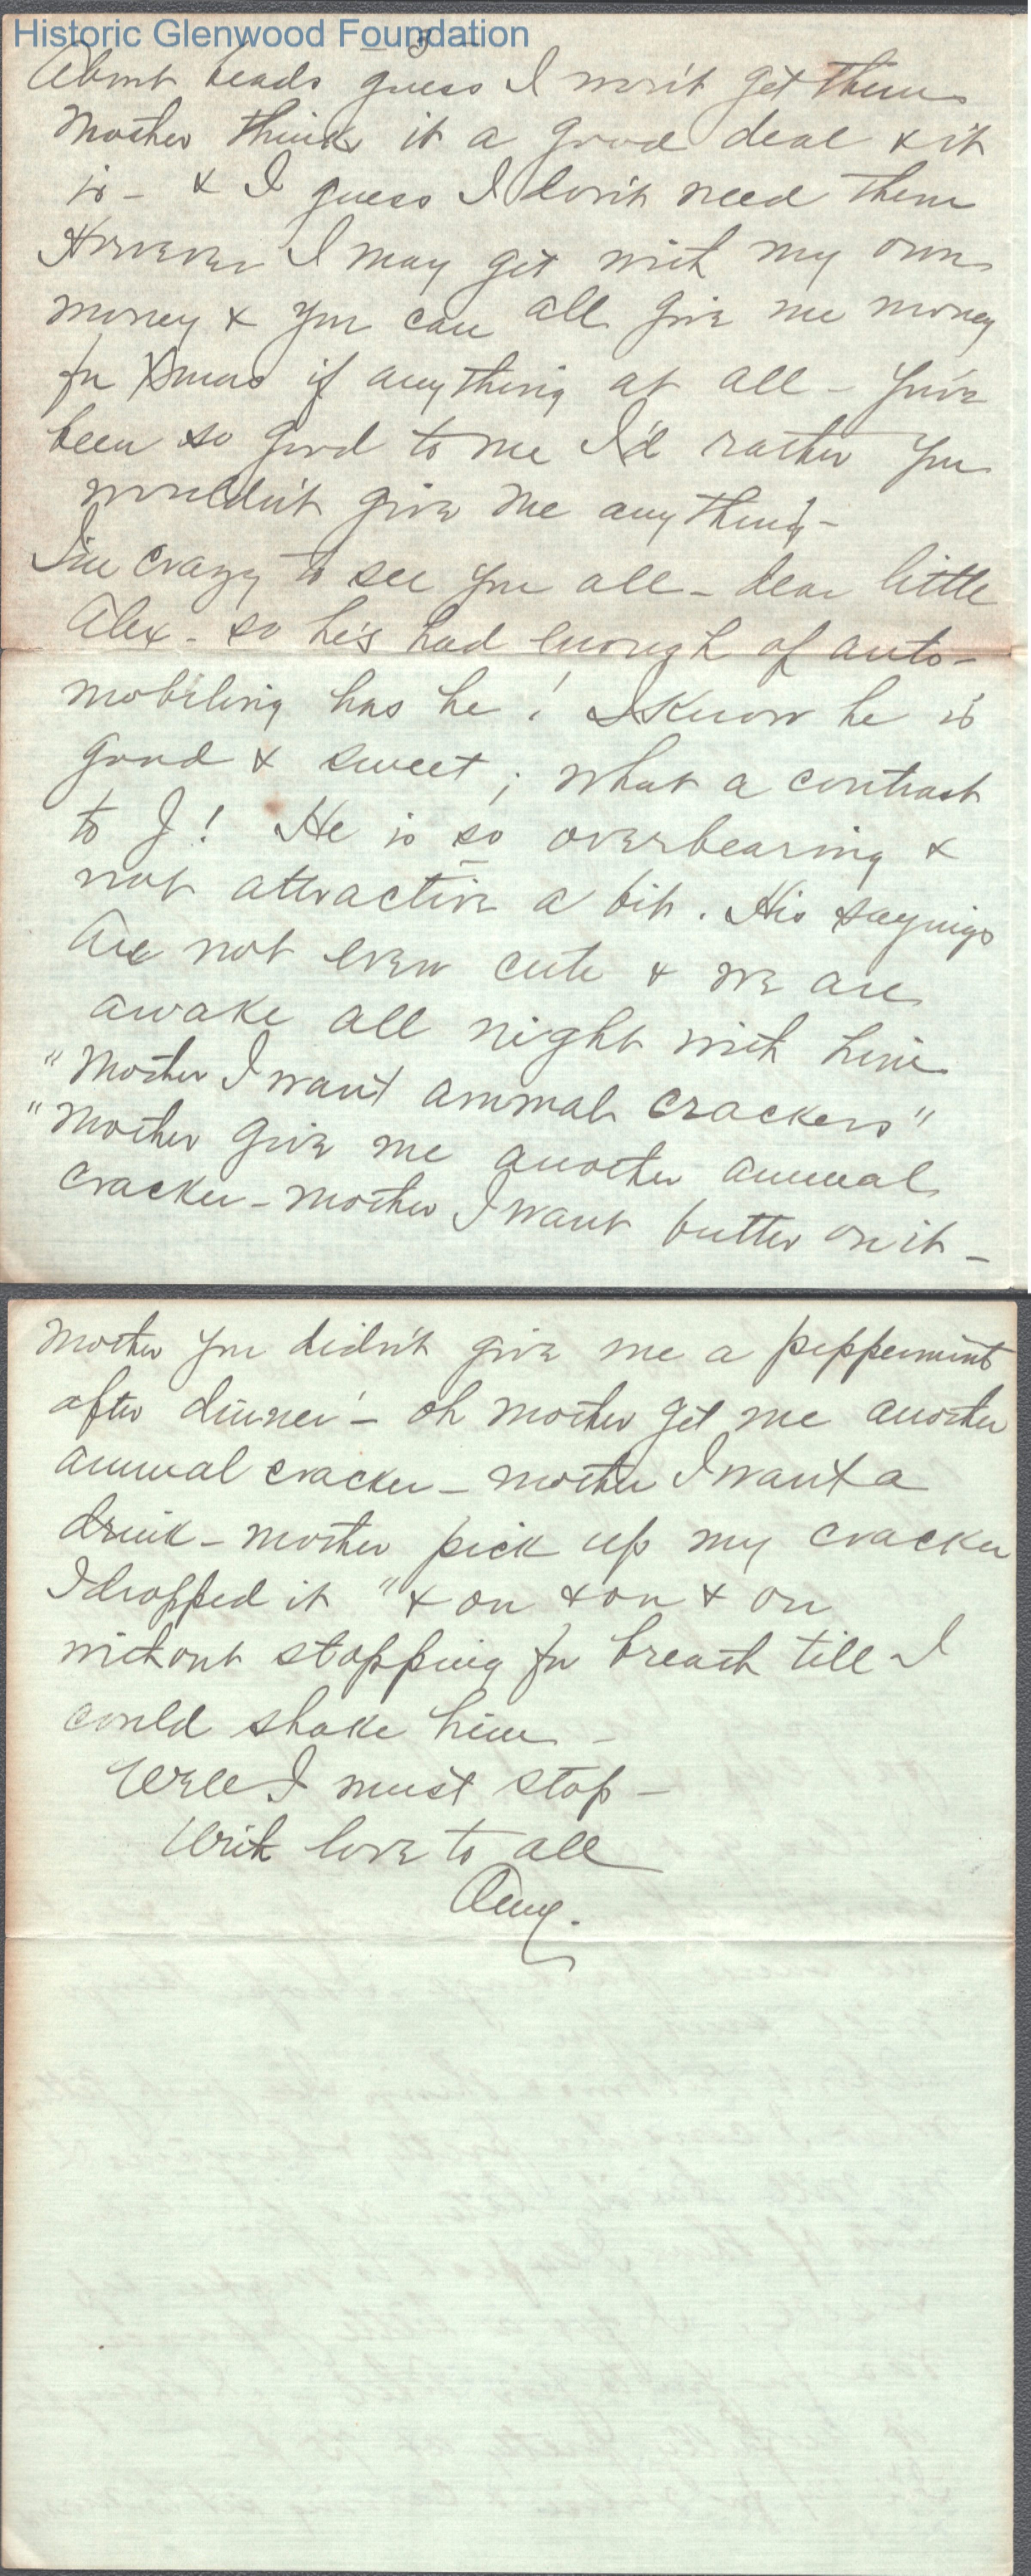 Historic Glenwood Foundation
- 3 -
About beads guess I won't get them
Mother thinks it a good deal & it
is - & I guess I don't need them
However I may get with my own
money & you can all give me money
for Xmas if anything at all - You've
been so good to me I'd rather you
wouldn't give me anything -
I'm crazy to see you all - dear little
Alex - so he's had enough of auto-
mobiling has he! I know he is
good & sweet; what a contrast
to J! He is so overbearing &
not attractive a bit. His sayings
are not even cute & we are
awake all night with him
"Mother I want animal crackers"
"Mother give me another animal
cracker - mother I want butter on it -
Mother you didn't give me a peppermint
after dinner - oh mother get me another
animal cracker - mother I want a
drink - mother pick up my cracker
I dropped it" & on & on & on
without stopping for breath till I
could shake him -
Well I must stop -
With love to all
Amy.